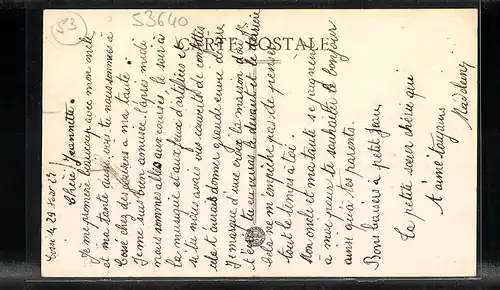 53640
CARTE POSTALE
Cossé le 29
Chère Jeannette.
Je me promène beaucoup avec mon oncle
et ma tante aussi vois tu nous sommes à
Cossé chez des cousins à ma tante.
Je me suis bien amusée. l'après midi
nous sommes allés aux courses, le soir à
la musique et aux feux d'artifice et
si tu nous avais vus couverts de confettis
cela t'aurait donner grande envie de rire
Je marque d'une croix la maison d'où je
t'écris tu en verras le devant et le derrière
Cela ne m'empêche pas de penser
tout le temps à toi.
Mon oncle et ma tante se joignent
à moi pour te souhaiter le bonjour
ainsi qu'à tes parents.
Bons baisers à petit Jean.
Ta petite sœur chérie qui
t'aime toujours